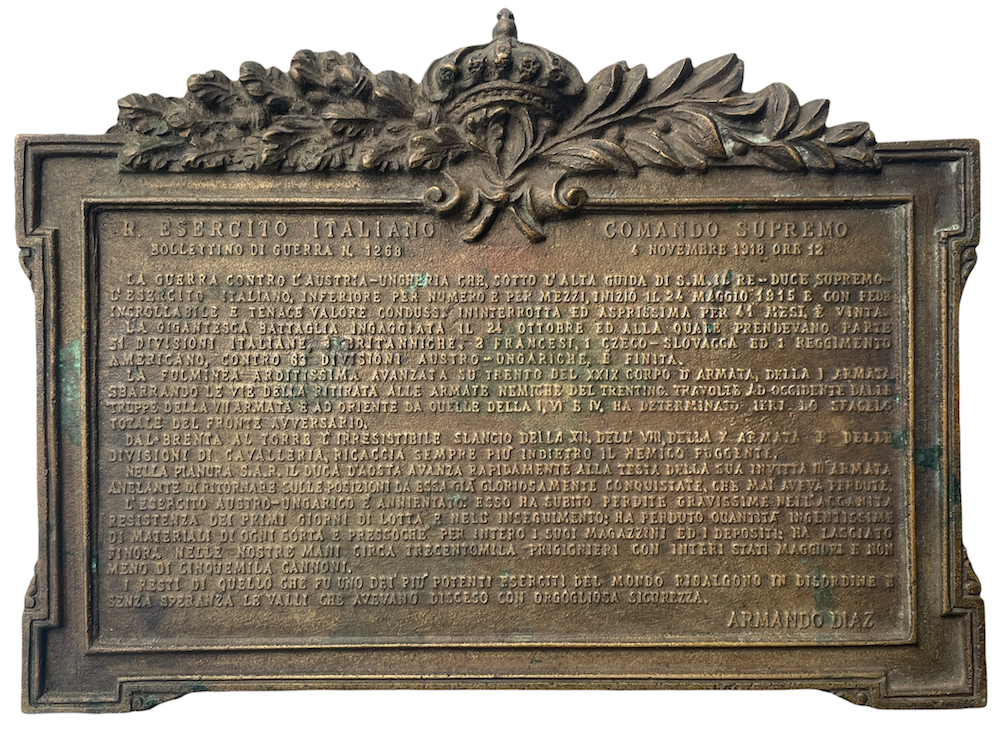 R. ESERCITO ITALIANO COMANDO SUPREMO
BOLLETTINO DI GUERRA N. 1268 4 NOVEMBRE 1918 ORE 12
LA GUERRA CONTRO L'AUSTRIA-UNGHERIA CHE, SOTTO L'ALTA GUIDA DI S.M. IL RE-DUCE SUPREMO-
L'ESERCITO ITALIANO, INFERIORE PER NUMERO E PER MEZZI, INIZIÒ IL 24 MAGGIO 1915 E CON FEDE
INCROLLABILE E TENACE VALORE CONDUSSE ININTERROTTA ED ASPRISSIMA PER 41 MESI, È VINTA.
LA GIGANTESCA BATTAGLIA INGAGGIATA IL 24 OTTOBRE ED ALLA QUALE PRENDEVANO PARTE
51 DIVISIONI ITALIANE, BRITANNICHE, 2 FRANCESI, 1 CZECO-SLOVACCA ED 1 REGGIMENTO
AMERICANO, CONTRO DIVISIONI AUSTRO-UNGARICHE, È FINITA.
LA FULMINEA ARDITISSIMA AVANZATA SU TRENTO DEL XXIX CORPO D'ARMATA, DELLA I ARMATA
SBARRANDO LE VIE DELLA RITIRATA ALLE ARMATE NEMICHE DEL TRENTINO, TRAVOLTE AD OCCIDENTE DALLE
TRUPPE DELLA VII ARMATA E AD ORIENTE DA QUELLE DELLA I, VI E IV, HA DETERMINATO IERI LO SFACELO
TOTALE DEL FRONTE AVVERSARIO.
DAL BRENTA AL TORRE L'IRRESISTIBILE SLANCIO DELLA XII, DELL' VIII, DELLA X ARMATA E DELLE
DIVISIONI DI CAVALLERIA, RICACCIA SEMPRE PIÙ INDIETRO IL NEMICO FUGGENTE.
NELLA PIANURA S.A.R. IL DUCA D'AOSTA AVANZA RAPIDAMENTE ALLA TESTA DELLA SUA INVITTA IIIª ARMATA
ANELANTE DI RITORNARE SULLE POSIZIONI DA ESSA GIÀ GLORIOSAMENTE CONQUISTATE, CHE MAI AVEVA PERDUTE.
L'ESERCITO AUSTRO-UNGARICO È ANNIENTATO: ESSO HA SUBITO PERDITE GRAVISSIME NELL'ACCANITA
RESISTENZA DEI PRIMI GIORNI DI LOTTA E NELL' INSEGUIMENTO; HA PERDUTO QUANTITÀ INGENTISSIME
DI MATERIALI DI OGNI SORTA E PRESSOCHÈ PER INTERO I SUOI MAGAZZINI ED I DEPOSITI; HA LASCIATO
FINORA NELLE NOSTRE MANI CIRCA TRECENTOMILA PRIGIONIERI CON INTERI STATI MAGGIORI E NON
MENO DI CINQUEMILA CANNONI.
I RESTI DI QUELLO CHE FU UNO DEI PIÙ POTENTI ESERCITI DEL MONDO RISALGONO IN DISORDINE E
SENZA SPERANZA LE VALLI CHE AVEVANO DISCESO CON ORGOGLIOSA SICUREZZA.
ARMANDO DIAZ